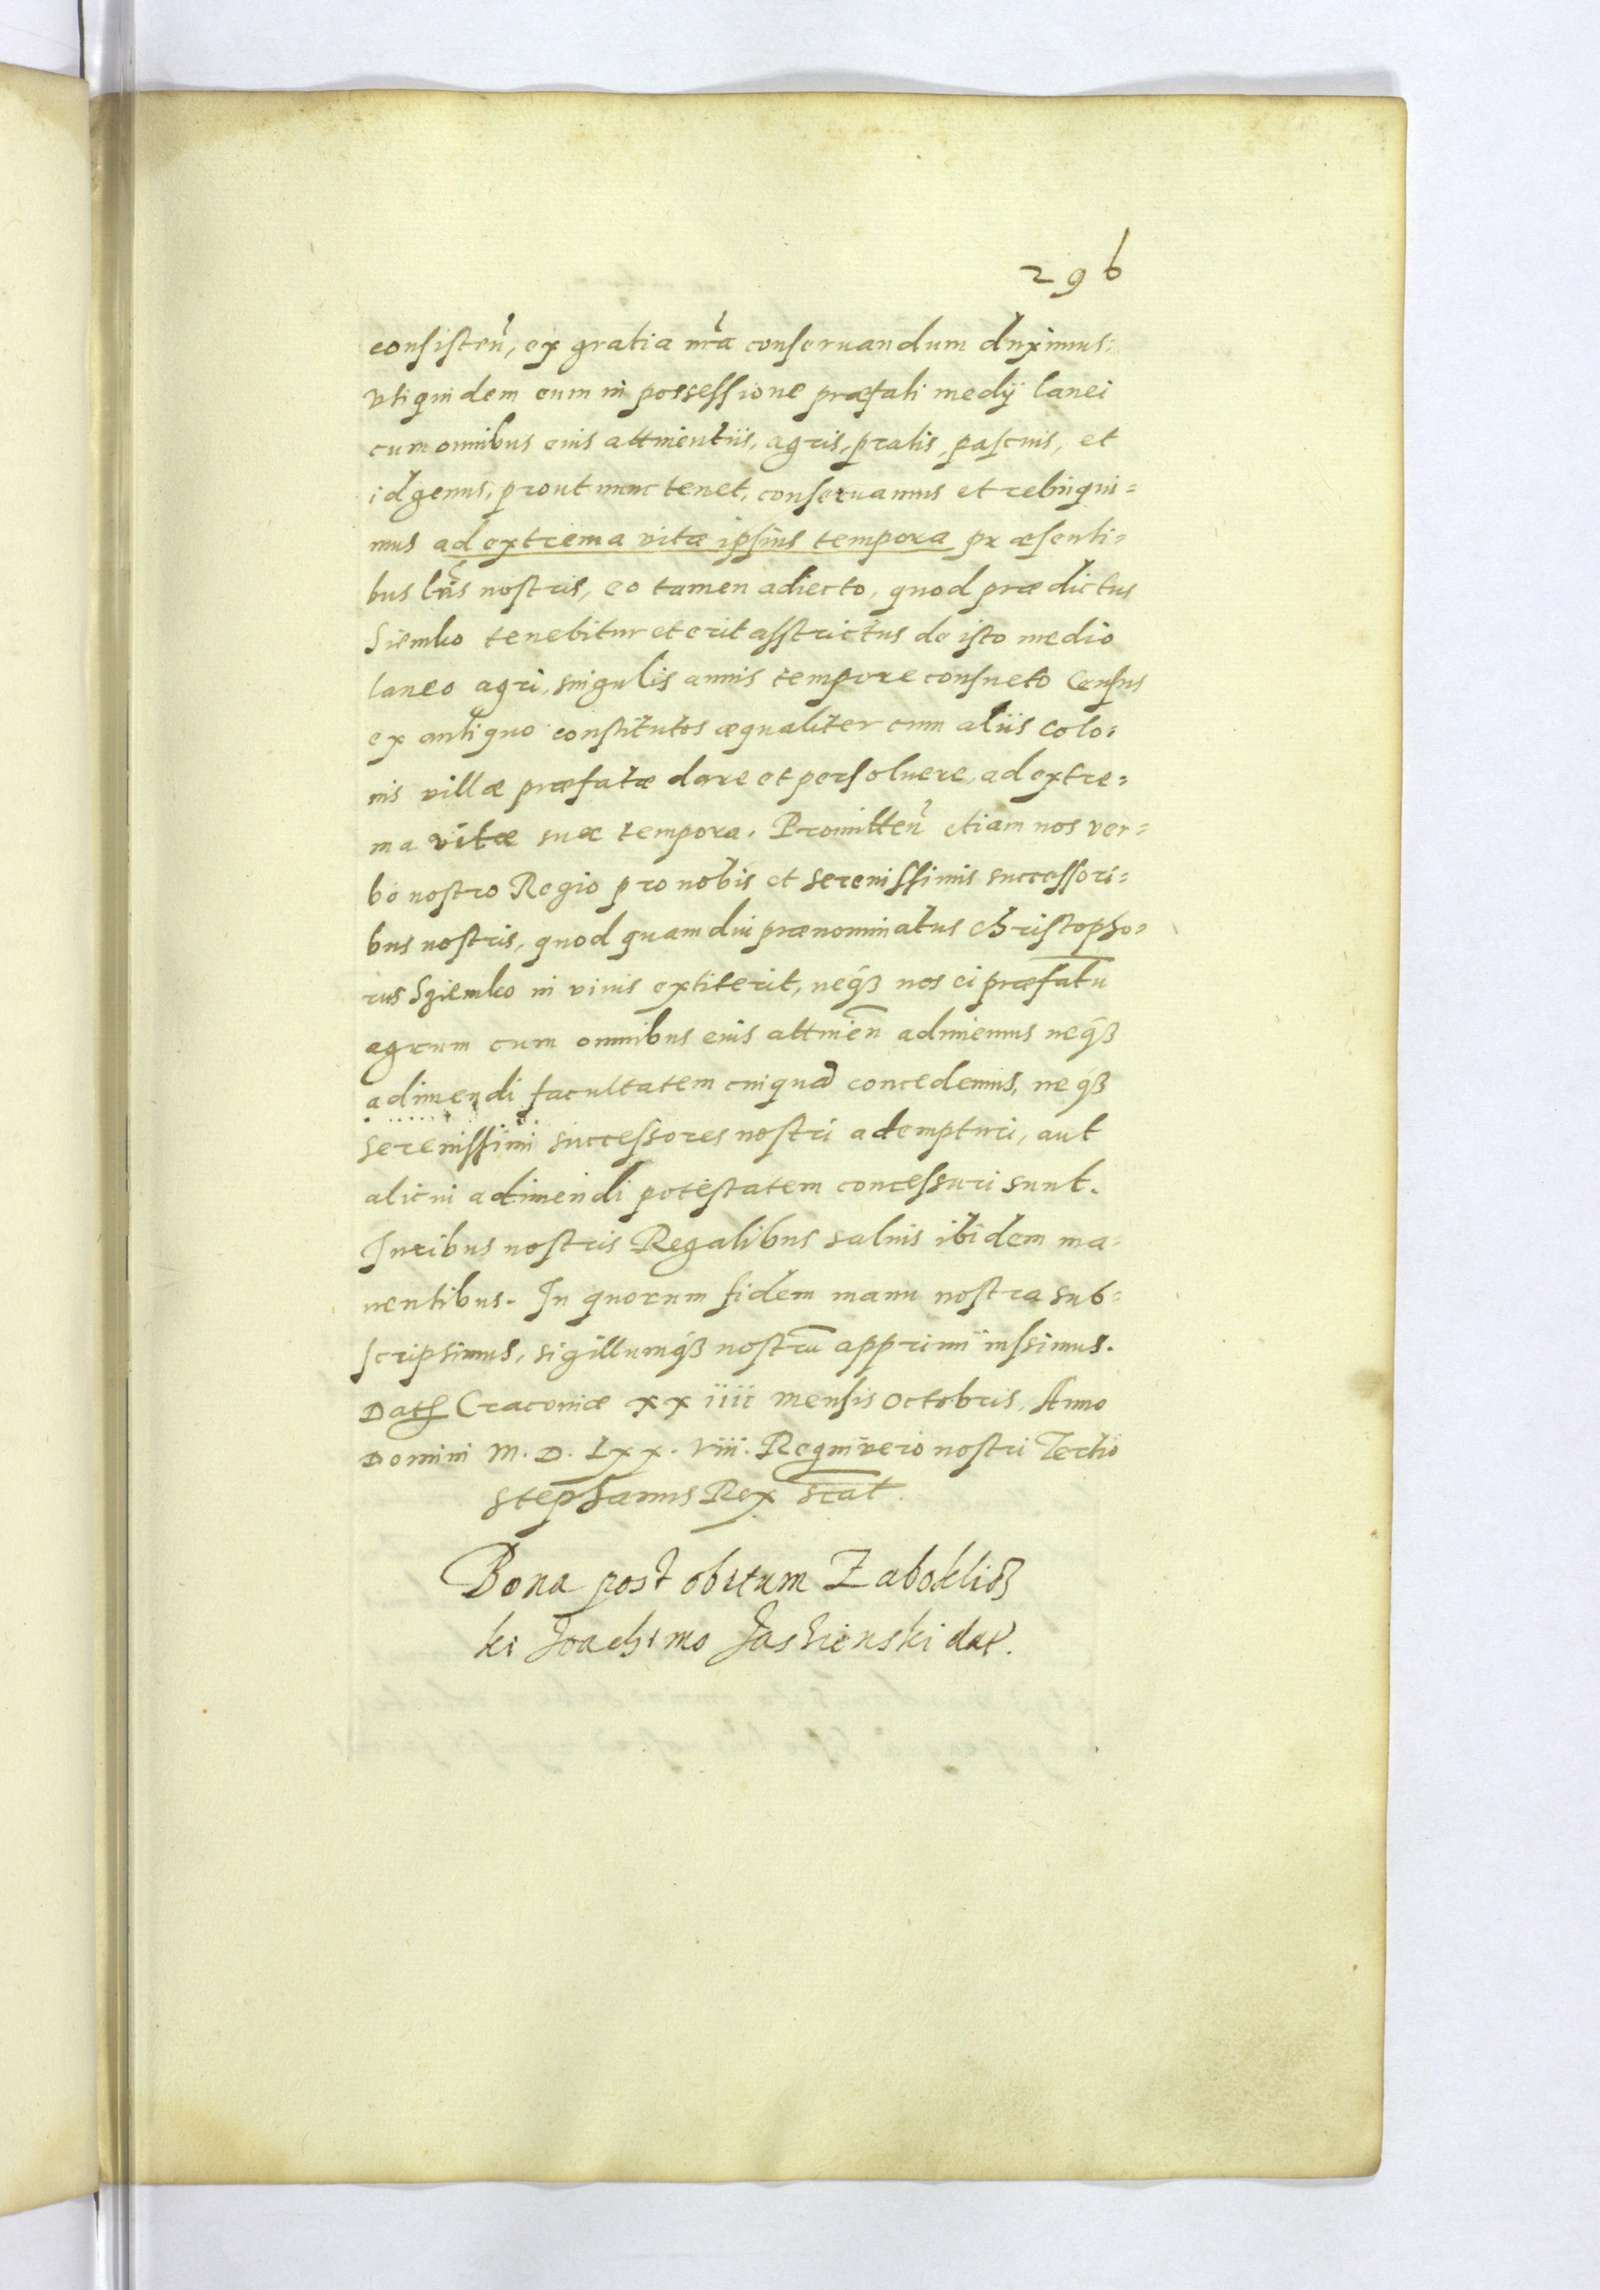 296
consisteñ, ex gratia nr̃a conseruandum duximus:
vtiquidem eum in possessione præfati medij lanei
cum omnibus eius attinentiis, agris, pratis, pascuis, et
idgenus, prout nunc tenet, conseruamus et relinqui=
mus ad extrema vitæ ipsius tempora præsenti=
bus lr̃is nostris, eo tamen adiecto, quod prædictus
Siemko tenebitur et erit asstrictus de isto medio
laneo agri, singulis annis tempore consueto Census
ex antiquo constitutos æqualiter cum aliis colo=
nis villæ præfatæ dare et persoluere, ad extre=
ma vitæ suæ tempora. Promitteñ etiam nos ver=
bo nostro Regio pro nobis et serenissimis successori=
bus nostris, quod quamdiu prænominatus Christopho=
rus Sziemko in viuis extiterit, neqꝫ nos ei præfatū
agrum cum omnibus eius attineñ adimemus neqꝫ
adimendi facultatem cuiquā concedemus, neqꝫ
serenissimi successores nostri adempturi, aut
alicui adimendi potestatem concessuri sunt.
Iuribus nostris Regalibus saluis ibidem ma=
nentibus. In quorum fidem manu nostra sub=
scripsimus, sigillumqꝫ nostrū apprimi iussimus.
Dat Cracouiæ xx iiii mensis Octobris, Anno
Domini M. D. Lxx. viii. Regni vero nostri Tertio
Stephanus Rex scãt.
Bona post obitum Zabokliß
ki Joachimo Jaskienski dat.